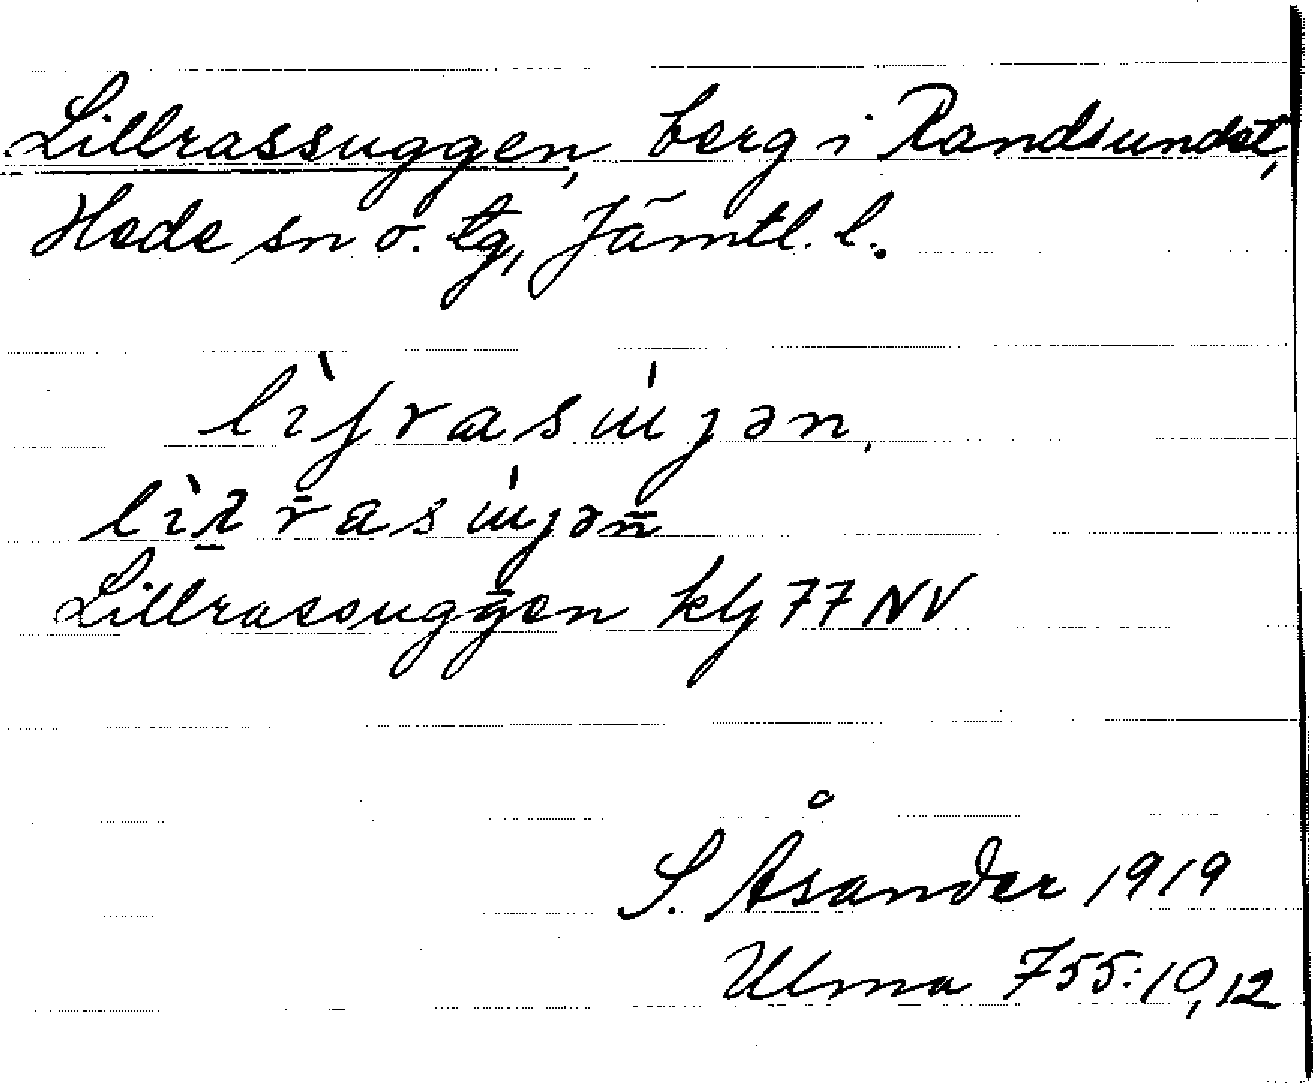 Lillrassuggen, berg i Randsundet,
Hede sn o. tg, Jämtl. l.
Lillrassuggen kbl 77 NV
S. Åsander 1919
Ulma 755:10,12